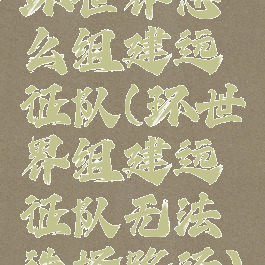 环世界怎
么组建远
征队(环世
界组建远
征队无法